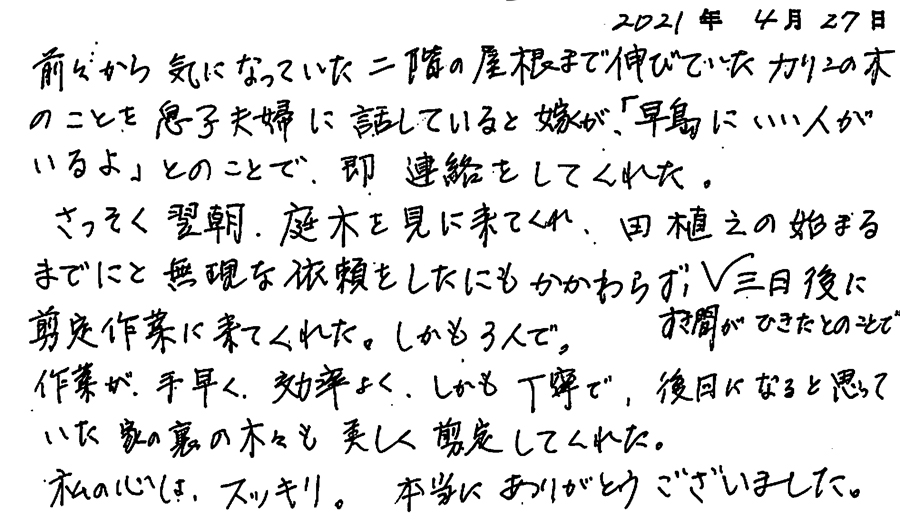 2021年 4月27日
前々から気になっていた二階の屋根まで伸びていたカリンの木
のことを息子夫婦に話していると嫁が、「早島にいい人が
いるよ」とのことで、即 連絡をしてくれた。
さっそく翌朝、庭木を見に来てくれ、田植えの始まる
までにと無理な依頼をしたにもかかわらず、√三日後に
すき間ができたとのことで
剪定作業に来てくれた。しかも3人で。
作業が、手早く、効率よく、しかも丁寧で、後日になると思って
いた家の裏の木々も美しく剪定してくれた。
私の心は、スッキリ。 本当にありがとうございました。